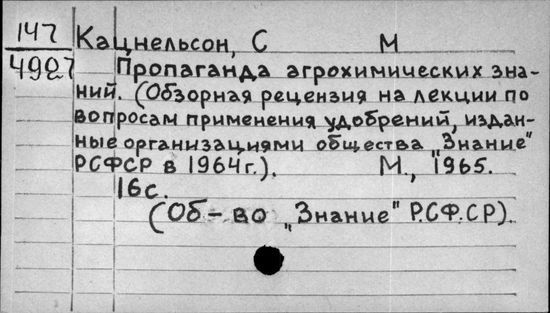 147
4987
Кацнельсон, С М
Пропаганда агрохимических зна-
ний. (Обзорная рецензия на лекции по
вопросам применения удобрений, издан-
ные организациями общества „Знание"
РСФСР в 1964г.). М., 1965.
16с.
(Об-во „Знание" РСФСР).